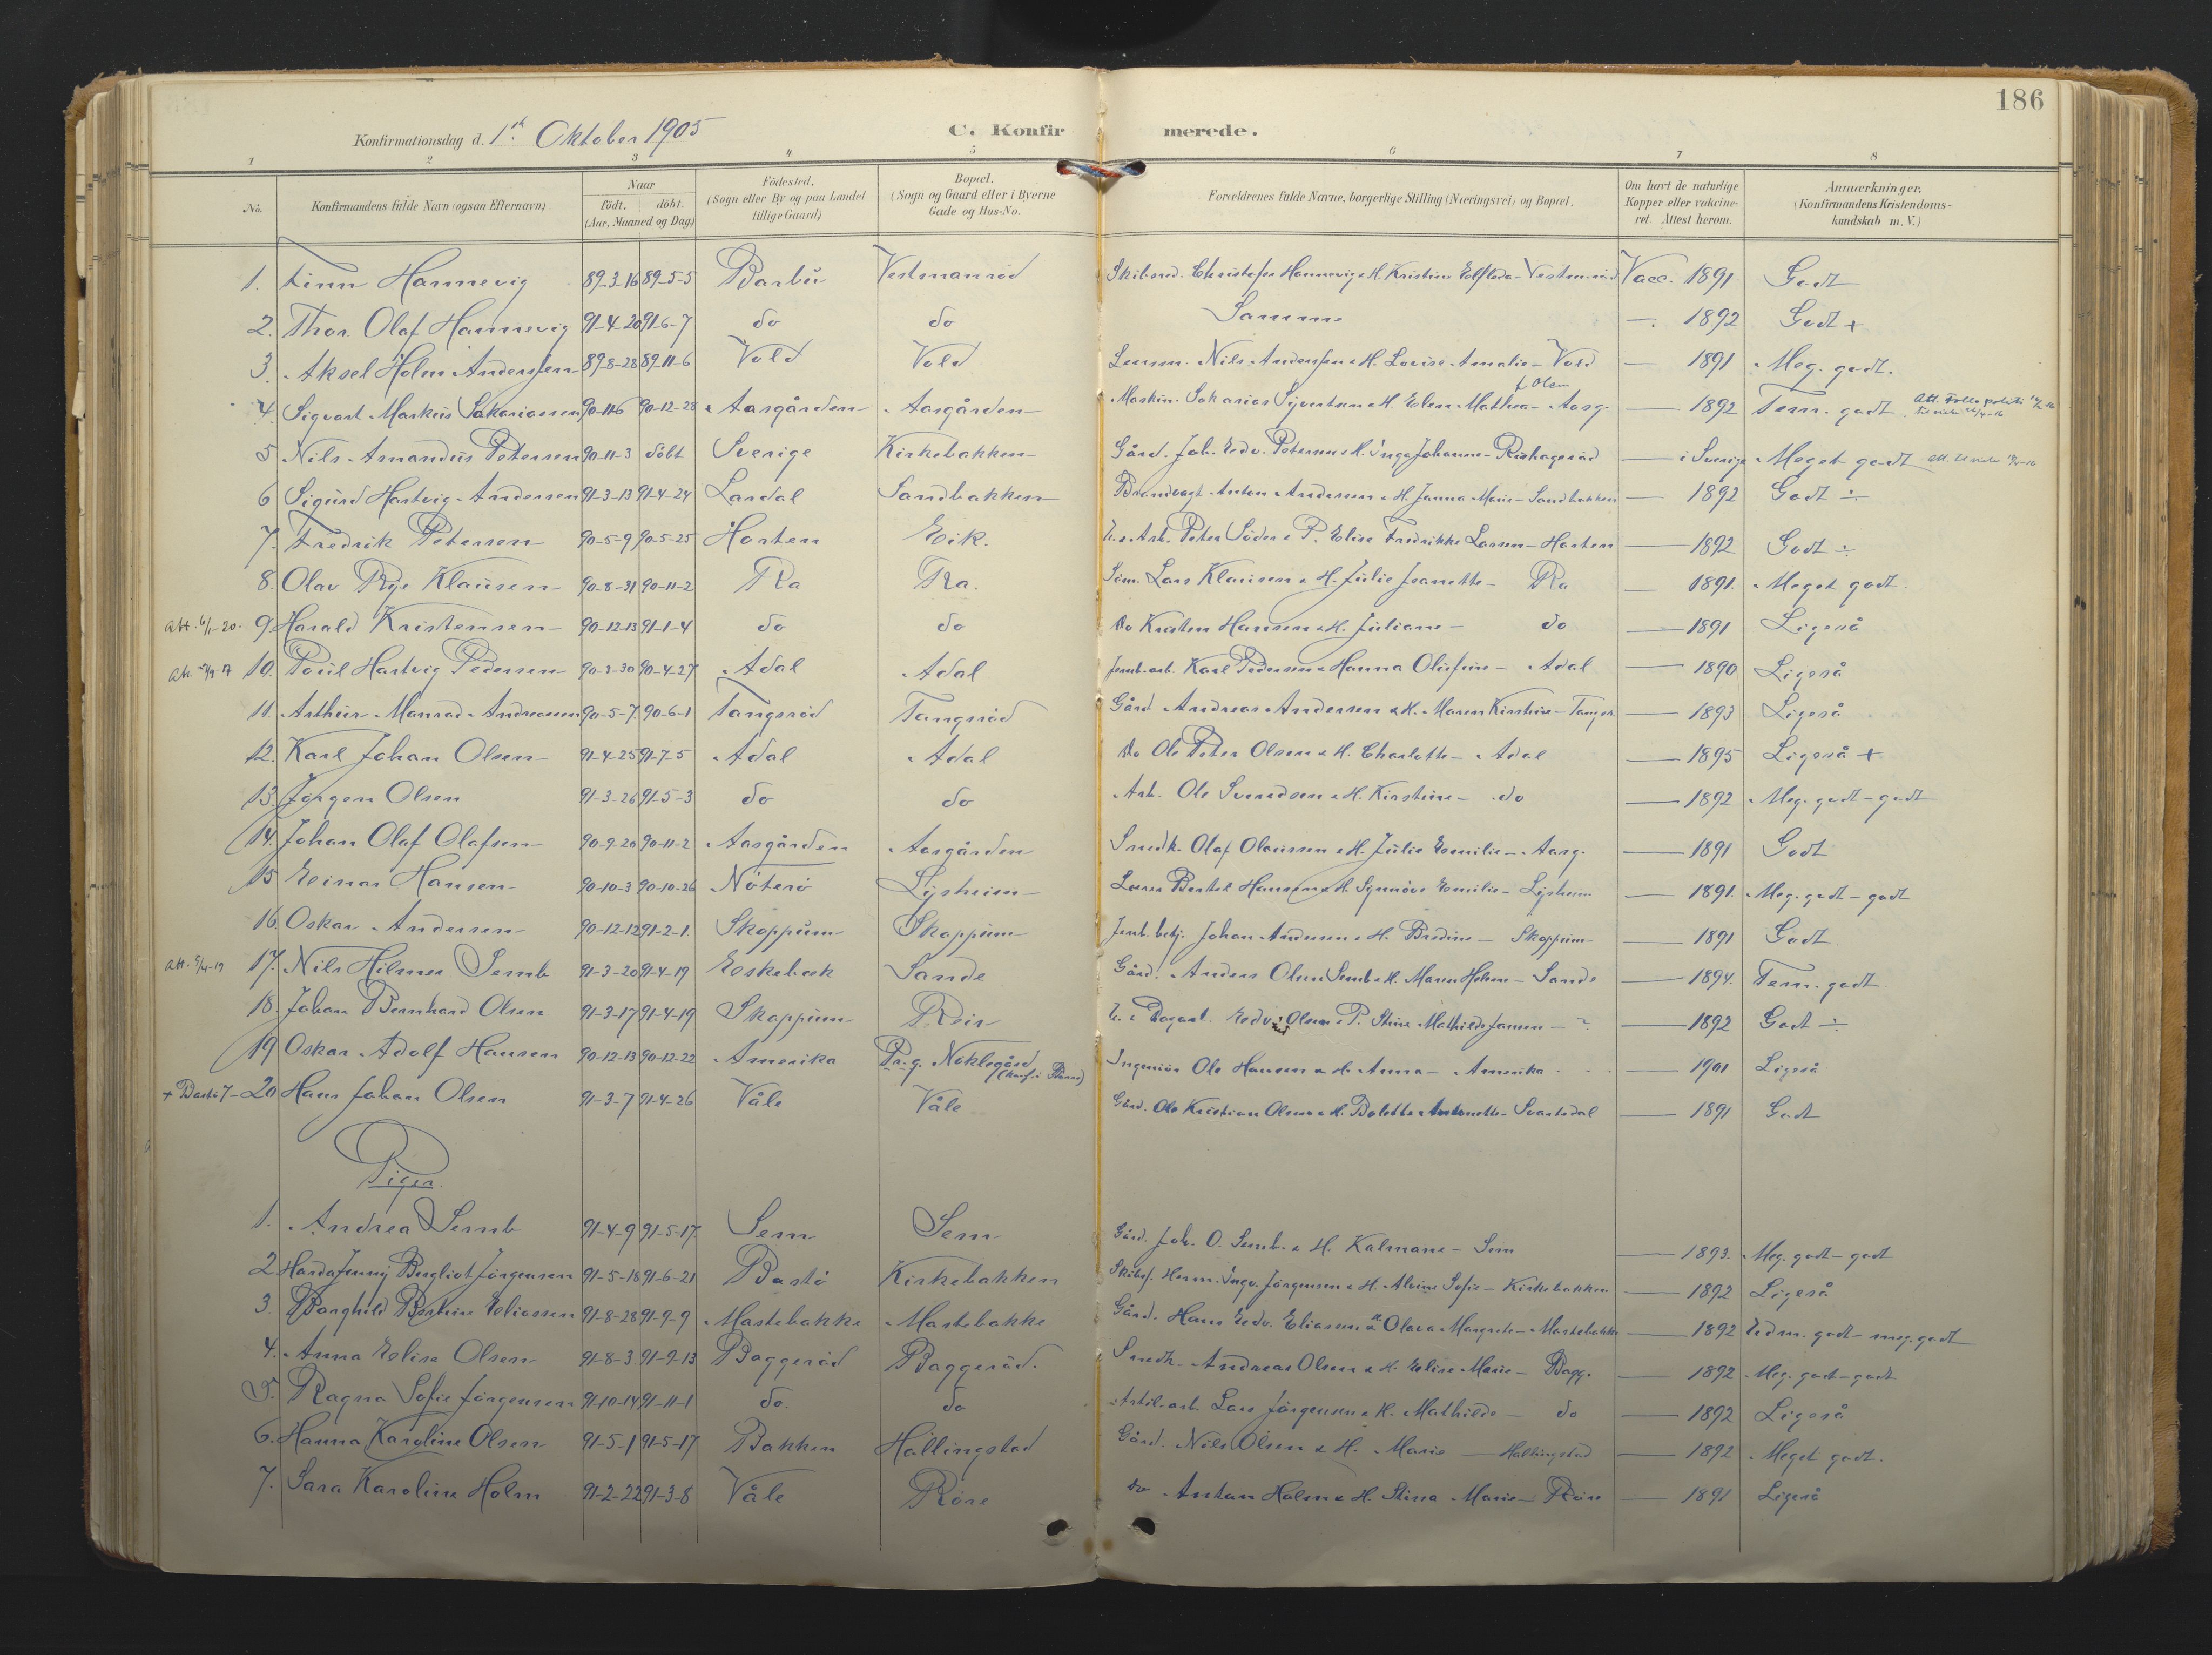 186
Konfirmationsdag d. 1ste Oktober 1905
C. Konfirmerede.
1 2 3 4 5 6 7 8
No. Konfirmandens fulde Navn (ogsaa Efternavn) Naar født. døbt. (Aar, Maaned og Dag) Födested. (Sogn eller By og paa Landet tillige Gaard) Bopæl. (Sogn og Gaard eller i Byerne Gade og Hus-No. Forældrenes fulde Navne, borgerlige Stilling (Næringsvei) og Bopæl. Om havt de naturlige Kopper eller vakcineret. Attest herom. Anmærkninger. (Konfirmandens Kristendomskundskab m. V.)
1. Finn Hannevig 89-3-16 89-5-5 Barbu Vestmanröd Skibsred. Christofer Hannevig & H. Kristine Vacc. 1891 Godt
2. Thor Olaf Hannevig 91-4-20 91-6-7 do do Samme — 1892 Godt +
3. Aksel Holm Andersen 89-8-28 89-11-6 Vold Vold Nils Andersen & H. Lovise Amalie — Vold — 1891 Meg. godt.
4. Sigvart Markus Sakariassen 90-11-6 90-12-28 Aasgården Aasgården Maskin. Sakarias Sigvartsen & H. Elen Mathea f. Olsen — Aasg. — 1892 Tem. godt
5 Nils Amandus Petersen 90-11-3 döbt Sverige Kirkebakken Gård. Joh. Edv. Petersen & H. Inga Johanne — i Sverige Meget godt
6 Sigurd Hartvig Andersen 91-3-13 91-4-24 Lardal Sandbakken Anton Andersen & H. Janna Marie — Sandbakken — 1892 Godt ÷
7. Fredrik Petersen 90-5-9 90-5-25 Horten Eik. U. e. Arb. Peter Söder & P. Elise Fredrikke Larsen — Horten — 1892 Godt ÷
8. Olav Rye Klausen 90-8-31 90-11-2 Ra Ra. Söm. Lars Klausen & H. Julie Jeanette — Ra — 1891. Meget godt
Att. 6/1-20. 9 Harald Kristensen 90-12-13 91-1-4 do do do Kristen Hansen & H. Juliane — do — 1891 Ligeså
10. Poul Hartvig Pedersen 90-3-30 90-4-27 Adal Adal Jernb.arb. Karl Pedersen & Hanna Olufine — Adal — 1890 Ligeså
11. Arthur Monrad Andreassen 90-5-7 90-6-1 Tangsröd Tangsröd Gård Andreas Andersen & H. Maren Kirstine — Tangsr. — 1893 Ligeså
12. Karl Johan Olsen 91-4-25 91-7-5 Adal Adal do Ole Peter Olsen & H. Charlotte — Adal — 1895 Ligeså +
13. Jörgen Olsen 91-3-26 91-5-3 do do Arb. Ole Svendsen & H. Kirstine — do — 1892 Meg. godt - godt
14. Johan Olaf Olafsen 90-9-20 90-11-2 Aasgården Aasgården Snedk. Olaf Olaussen & H. Julie Emilie — Aasg. — 1891 Godt
15 Einar Hansen 90-10-3 90-10-26 Nöterö Lysheim Bertel Hansen & H. Synnöve Emilie — Lysheim — 1891. Meg. godt - godt
16. Oskar Andersen 90-12-12 91-2-1. Skoppum Skoppum Jernb.betj. Johan Andersen & H. Bredine — Skoppum — 1891 Godt
17. Nils Hilmer Semb 91-3-20 91-4-19 Eskebæk Sande Gård. Anders Olsen Semb & H. Maren Helene — Sande — 1894. Tem. godt
18. Johan Bernhard Olsen 91-3-17 91-4-19 Skoppum Reir U. e. Dagarb. Edv. Olsen & P. Stine Mathilde Jansen — ? — 1892 Godt ÷
19 Oskar Adolf Hansen 90-12-13 90-12-22 Amerika Pr. g. Nöklegård Ingeniör Ole Hansen & H. Anna — Amerika — 1901 Ligeså
20 Hans Johan Olsen 91-3-7 91-4-26 Våle Våle Gård. Ole Kristian Olsen & H. Bolette Antonette — Svartedal — 1891 Godt
Piger.
1. Andrea Semb 91-4-9 91-5-17. Sem Sem Gård. Joh. O. Semb & H. Kalmane — Sem — 1893. Meg. godt - godt
2 Jenny Bergliot Jörgensen 91-5-18 91-6-21 Bastö Kirkebakken Skibsf. Herm. Ingv. Jörgensen & H. Alvine Sofie — Kirkebakken — 1892 Ligeså
3. Borghild Bertine Eliassen 91-8-28 91-9-9 Mastebakke Mastebakke Gård. Hans Edv. Eliassen & H. Olava Margrete — Mastebakke — 1892 Udm. godt - meg. godt
4. Anna Elise Olsen 91-8-3 91-9-13 Baggeröd Baggeröd. Snedk. Andreas Olsen & H. Elise Marie — Bagg. — 1892 Meg. godt - godt
5. Ragna Sofie Jörgensen 91-10-14 91-11-1 do. do Lars Jörgensen & H. Mathilde — do — 1892 Ligeså
6. Hanna Karoline Olsen 91-5-1 91-5-17 Bakken Hallingstad Gård. Nils Olsen & H. Marie — Hallingstad — 1892 Meget godt.
7. Sara Karoline Holm 91-2-22 91-3-8 Våle Röre do Anton Holm & H. Stina Marie — Röre — 1891 Ligeså